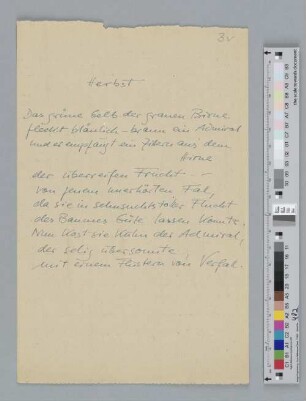 3v
Herbst
Das grüne Gelb der grauen Birne
fleckt bläulich-braun ein Admiral
und er empfängt ein aus dem
Hirne
der überreifen Frucht –
von jenem unerhörten Fal,
da sie in Flucht
des Baumes Süße lassen konnte.
Nun kost sie kühn der Admiral,
der selig übersonnte,
mit einem Flüstern von Verfal.